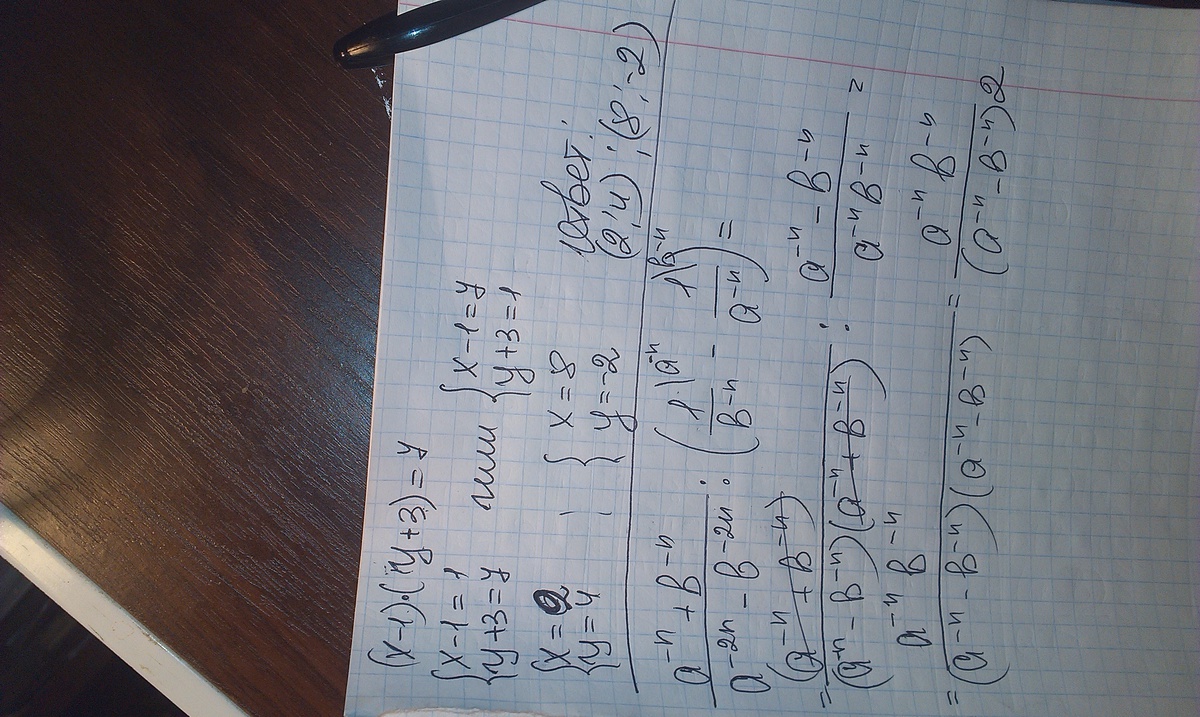 (x-1)·(y+3)=7
{x-1=1
{y+3=7
или
{x-1=7
{y+3=1
{x=2
{y=4
{x=8
{y=-2
Ответ:
(2;4);(8;-2)
a⁻ⁿ+b⁻ⁿ / a⁻²ⁿ-b⁻²ⁿ : (1\a⁻ⁿ / b⁻ⁿ - 1\b⁻ⁿ / a⁻ⁿ) =
= (a⁻ⁿ+b⁻ⁿ) / (a⁻ⁿ-b⁻ⁿ)(a⁻ⁿ+b⁻ⁿ) : a⁻ⁿ-b⁻ⁿ / a⁻ⁿb⁻ⁿ =
= a⁻ⁿ b⁻ⁿ / (a⁻ⁿ-b⁻ⁿ)(a⁻ⁿ-b⁻ⁿ) = a⁻ⁿ b⁻ⁿ / (a⁻ⁿ-b⁻ⁿ)2